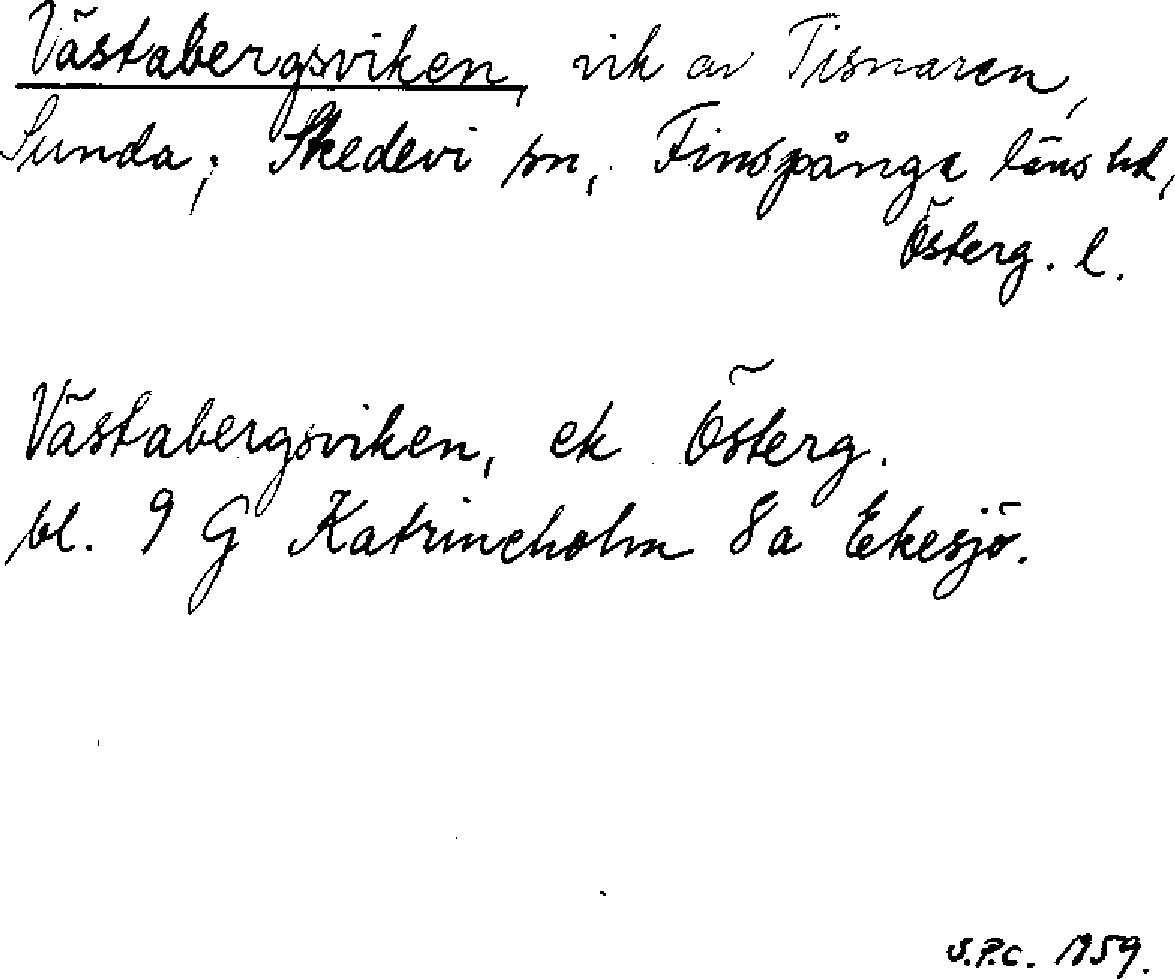 Västabergsviken, vik av Tisnaren,
Sunda; Skedevi sn, Finspånga läns hd,
Österg. l.
Västabergsviken, ek Österg.
bl. 9 G Katrineholm 8a Ekesjö.
S.P.C. 1959.